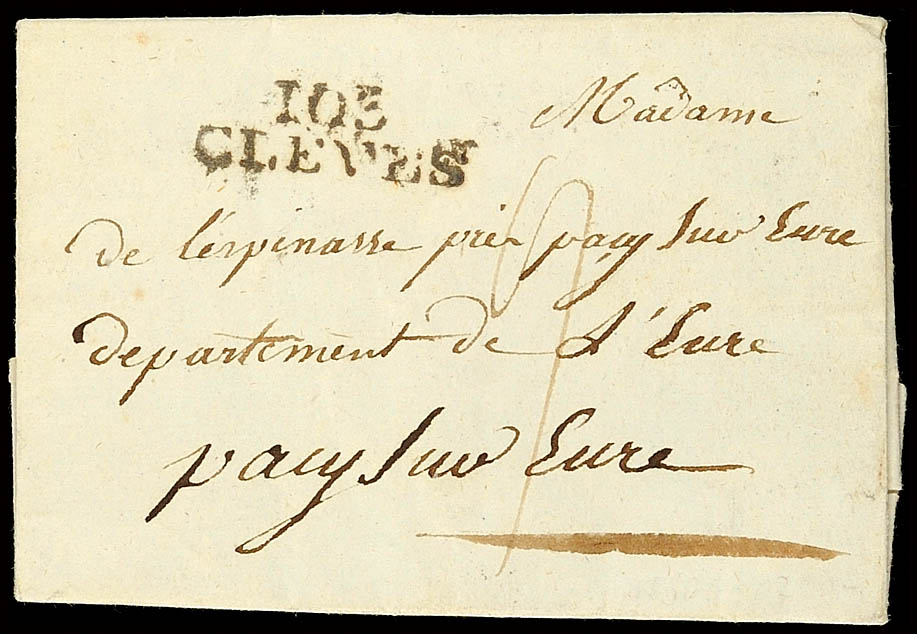 103
CLEVES
Madame
de l'espinasse près pacy Sur Eure
département de L'Eure
pacy Sur Eure